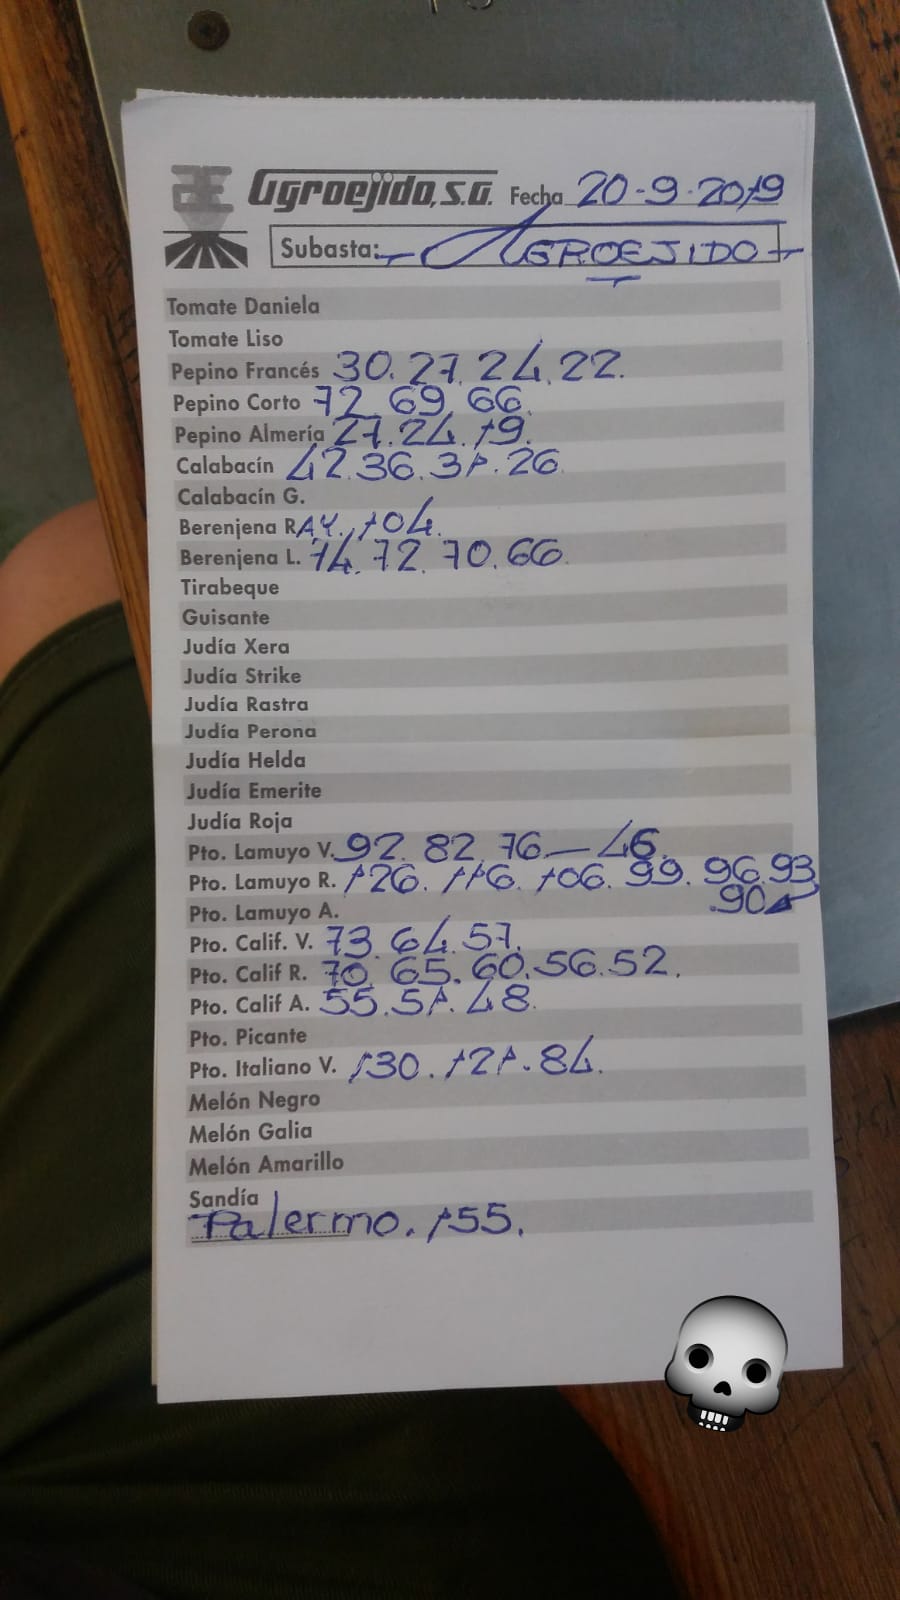 Agroejido, S.A. Fecha 20-9-2019
Subasta: AGROEJIDO
Tomate Daniela
Tomate Liso
Pepino Francés 30. 27. 24. 22.
Pepino Corto 72. 69. 66.
Pepino Almería 27. 24. 19.
Calabacín 42. 36. 31. 26.
Calabacín G.
Berenjena RAY. 104.
Berenjena L. 74. 72. 70. 66.
Tirabeque
Guisante
Judía Xera
Judía Strike
Judía Rastra
Judía Perona
Judía Helda
Judía Emerite
Judía Roja
Pto. Lamuyo V. 92. 82. 76. — 46.
Pto. Lamuyo R. 126. 116. 106. 99. 96. 93
.90
Pto. Lamuyo A.
Pto. Calif. V. 73. 64. 57.
Pto. Calif R. 70. 65. 60. 56. 52.
Pto. Calif A. 55. 51. 48.
Pto. Picante
Pto. Italiano V. 130. 121. 84.
Melón Negro
Melón Galia
Melón Amarillo
Sandía
Palermo. 155.